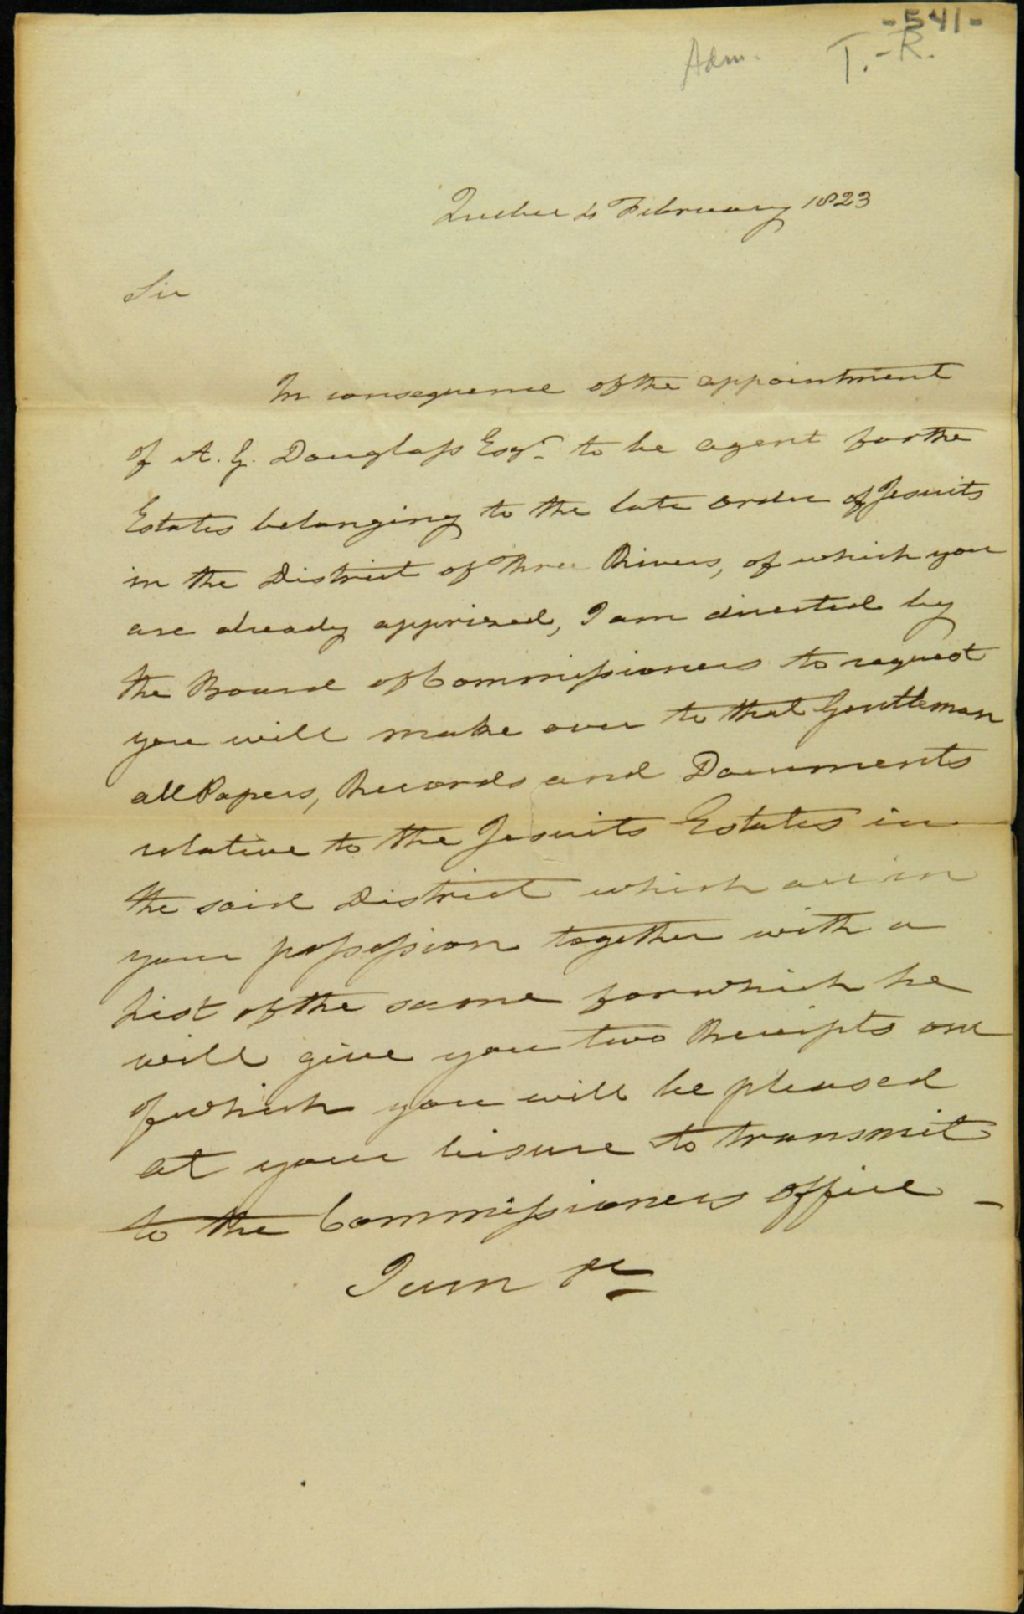 -541-
Adm. T.-R.
Quebec 4 February 1823
Sir
In consequence of the appointment
of A. G. Douglass Esqr. to be agent for the
Estates belonging to the late order of Jesuits
in the District of Three Rivers, of which you
are already apprized, I am directed by
the Board of Commissioners to request
you will make over to that Gentleman
all Papers, Records and Documents
relative to the Jesuits Estates in
the said District which are in
your possession together with a
list of the same for which he
will give you two Receipts one
of which you will be pleased
at your leisure to transmit
to the Commissioners office —
I am &c